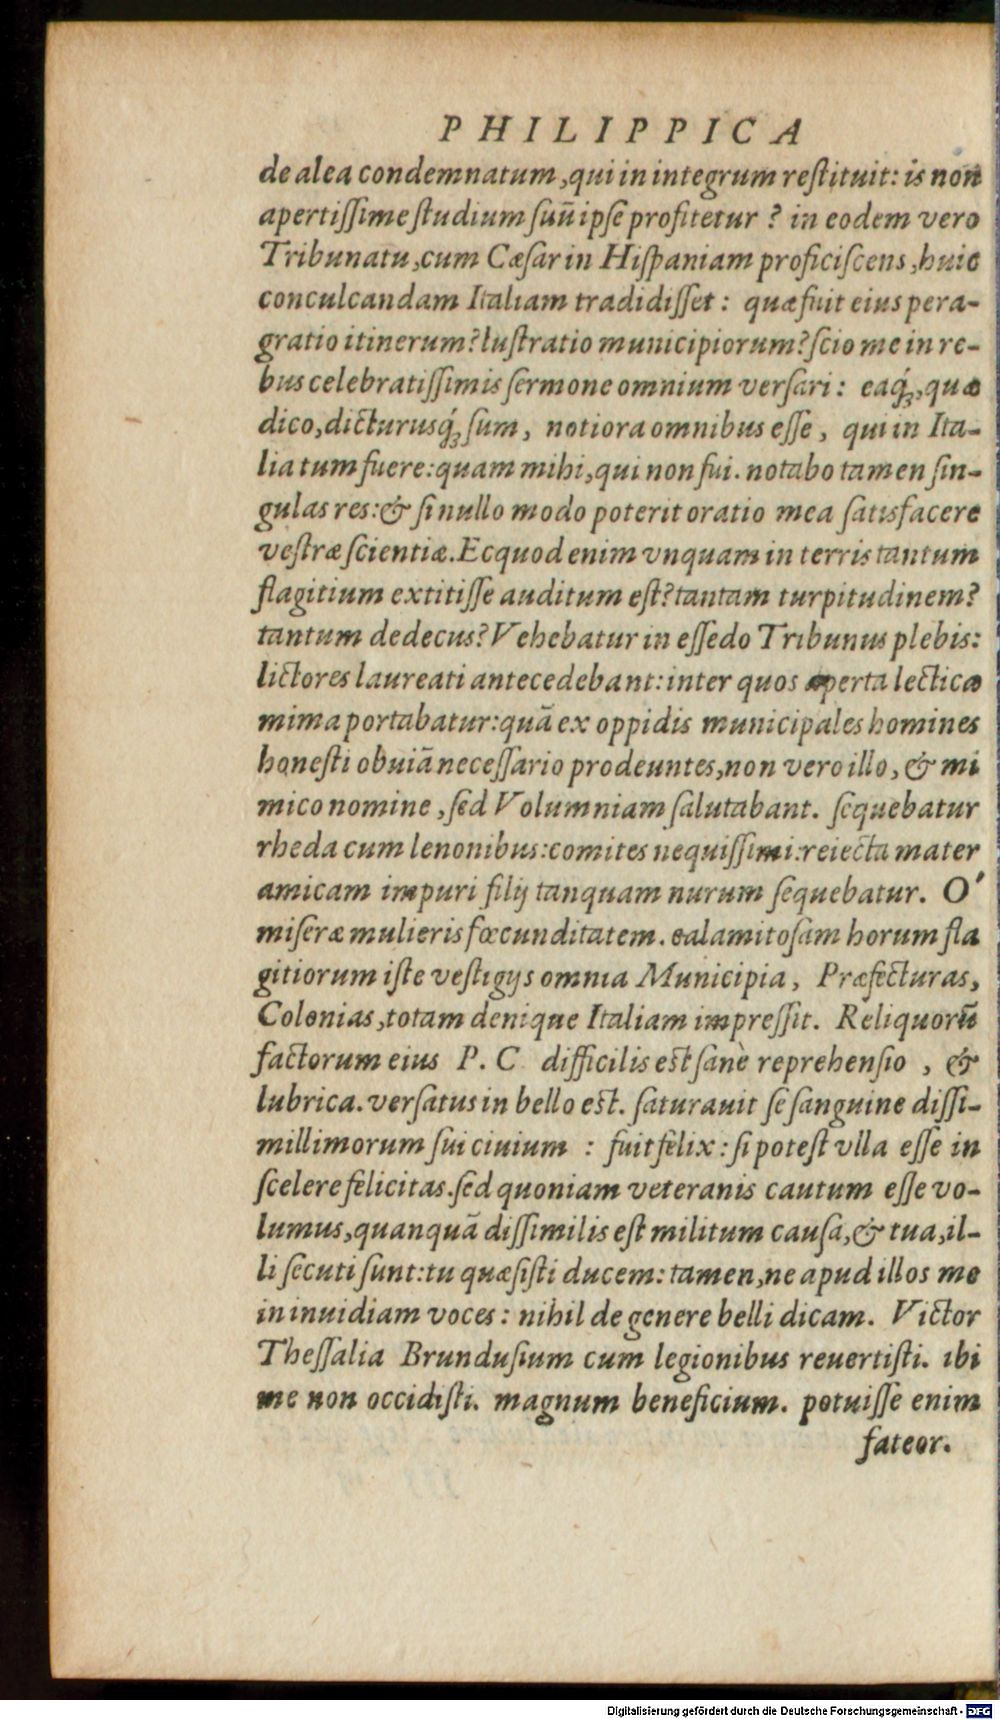 PHILIPPICA
de alea condemnatum, qui in integrum reſtituit: is non
apertiſſime ſtudium ſuū ipſe profitetur ? in eodem vero
Tribunatu, cum Cæſar in Hiſpaniam proficiſcens, huic
conculcandam Italiam tradidiſſet: quæ fuit eius pera-
gratio itinerum? luſtratio municipiorum? ſcio me in re-
bus celebratiſſimis ſermone omnium verſari: eaq́;, quæ
dico, dicturusq́; ſum, notiora omnibus eſſe, qui in Ita-
lia tum fuere: quam mihi, qui non fui. notabo tamen ſin-
gulas res: & ſi nullo modo poterit oratio mea ſatisfacere
veſtræ ſcientiæ. Ecquod enim vnquam in terris tantum
flagitium extitiſſe auditum eſt? tantam turpitudinem?
tantum dedecus? Vehebatur in eſſedo Tribunus plebis:
lictores laureati antecedebant: inter quos aperta lectica
mima portabatur: quā ex oppidis municipales homines
honeſti obuiā neceſſario prodeuntes, non vero illo, & mi
mico nomine, ſed Volumniam ſalutabant. ſequebatur
rheda cum lenonibus: comites nequiſſimi: reiecta mater
amicam impuri filij tanquam nurum ſequebatur. O'
miſeræ mulieris fœcunditatem. calamitoſam horum fla
gitiorum iſte veſtigijs omnia Municipia, Præfecturas,
Colonias, totam denique Italiam impreſſit. Reliquorū
factorum eius P. C difficilis est ſanè reprehenſio , &
lubrica. verſatus in bello est. ſaturauit ſe ſanguine diſſi-
millimorum ſui ciuium : fuit felix: ſi poteſt vlla eſſe in
ſcelere felicitas. ſed quoniam veteranis cautum eſſe vo-
lumus, quanquā diſſimilis eſt militum cauſa, & tua, il-
li ſecuti ſunt: tu quæſiſti ducem: tamen, ne apud illos me
in inuidiam voces: nihil de genere belli dicam. Victor
Theſſalia Brunduſium cum legionibus reuertiſti. ibi
me non occidiſti. magnum beneficium. potuiſſe enim
fateor.
Digitalisierung gefördert durch die Deutsche Forschungsgemeinschaft - DFG